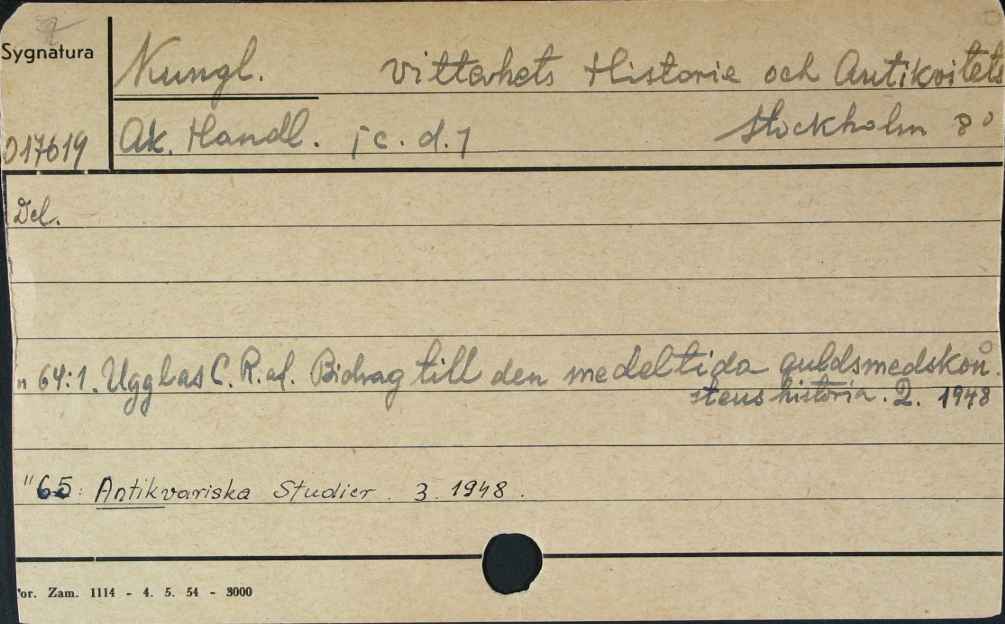 Sygnatura
Kungl. Vitterhets Historie och Antikvitets
017619
Ak. Handl. [c. d.] Stockholm 8°
Del.
" 64:1. Ugglas C. R. af. Bidrag till den medeltida guldsmedskon.
stens historia. 2. 1948
" 65: Antikvariska Studier. 3. 1948.
or. Zam. 1114 - 4. 5. 54 - 3000